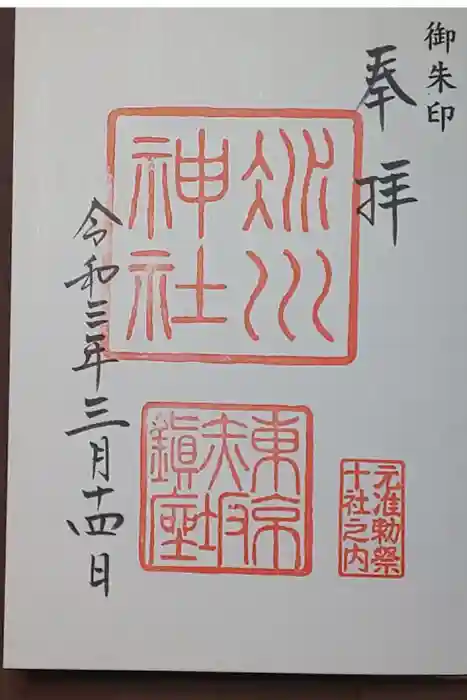 御朱印
奉拝
氷川
神社
東京
赤坂
鎮座
元准勅祭
十社之内
令和三年三月十四日